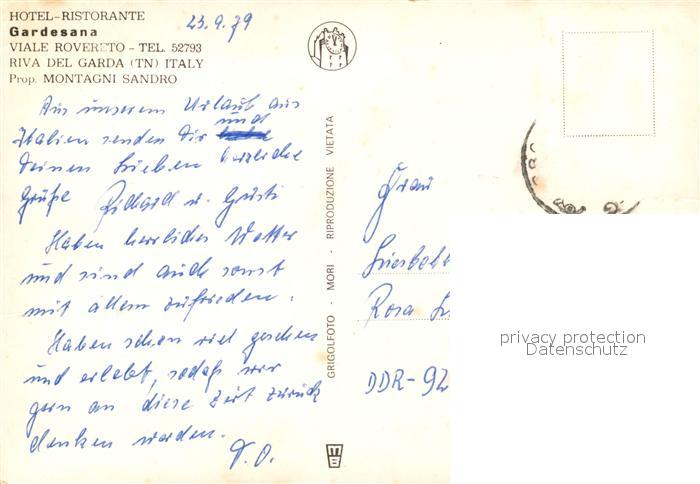 HOTEL-RISTORANTE
Gardesana
VIALE ROVERETO - TEL. 52793
RIVA DEL GARDA (TN) ITALY
Prop. MONTAGNI SANDRO
23.9.79
Aus unserem Urlaub aus
Italien senden Dir und
Deinen Lieben herzliche
Grüße Richard u. Gusti
Haben herrliches Wetter
und sind auch sonst
mit allem zufrieden.
Haben schon viel gesehen
und erlebt, sodaß wir
gern an diese Zeit zurück
denken werden.
D.O.
GRIGOLFOTO - MORI - RIPRODUZIONE VIETATA
Frau
Rosa
DDR-92
privacy protection
Datenschutz